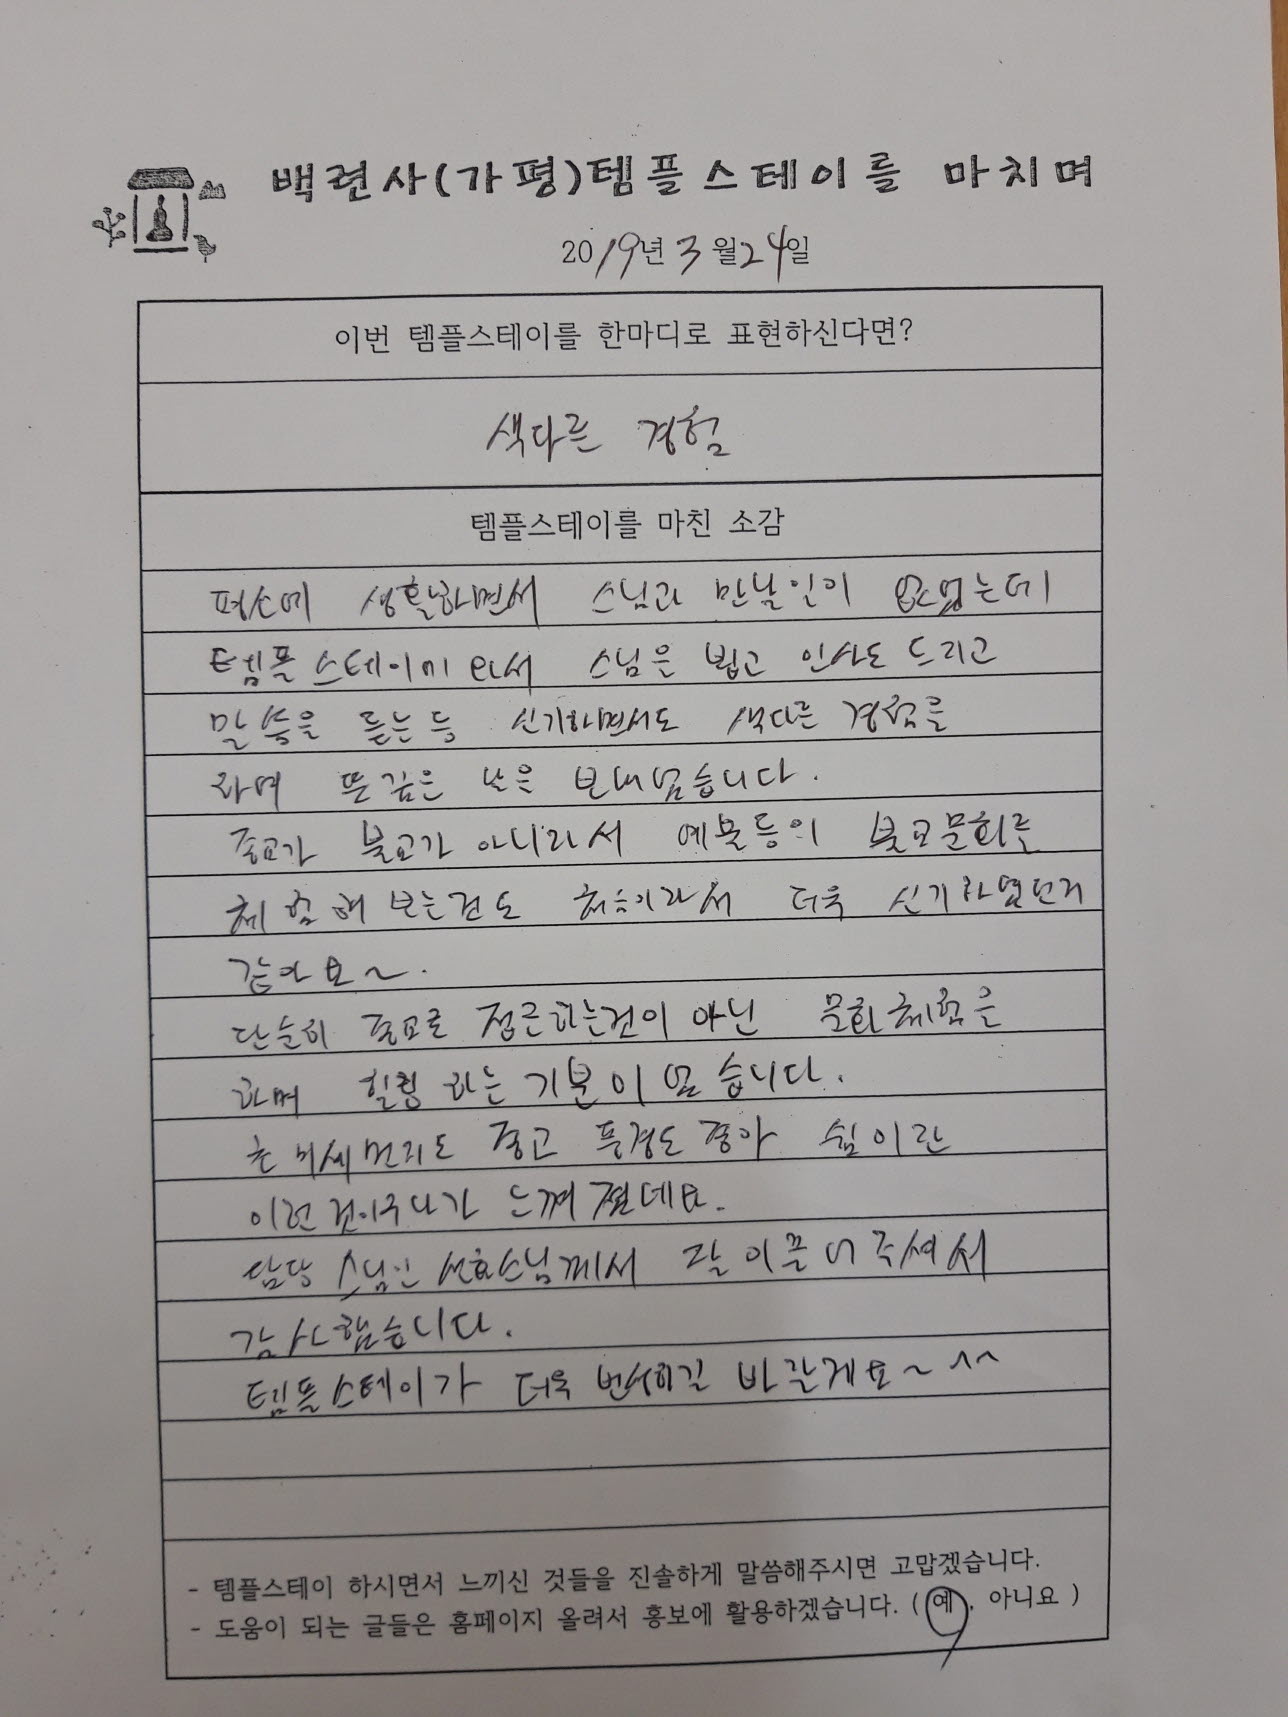 백련사(가평)템플스테이를 마치며
2019년 3월24일
이번 템플스테이를 한마디로 표현하신다면?
색다른 경험
템플스테이를 마친 소감
평소에 생활하면서 스님과 만날일이 없었는데
템플스테이에 와서 스님을 뵙고 인사도 드리고
말씀을 듣는등 신기하면서도 색다른 경험를
하며 뜻깊은 날은 보내었습니다.
종교가 불교가 아니라서 예불등의 불교문화를
체험해 보는건도 처음이라서 더욱 신기하였던거
같아요~.
단순히 종교로 접근하는건이 아닌 문화체험을
하며 힐링 하는 기분이 었습니다.
미세먼지도 좋고 풍경도 좋아 쉼이란
이런것이구나가 느껴졌데요.
담당 스님인 선효스님께서 잘 이끌어주셔서
감사했습니다.
템플스테이가 더욱 번성하길 바랄게요~ ^^
- 템플스테이 하시면서 느끼신 것들을 진솔하게 말씀해주시면 고맙겠습니다.
- 도움이 되는 글들은 홈페이지 올려서 홍보에 활용하겠습니다. ( 예 , 아니요 )